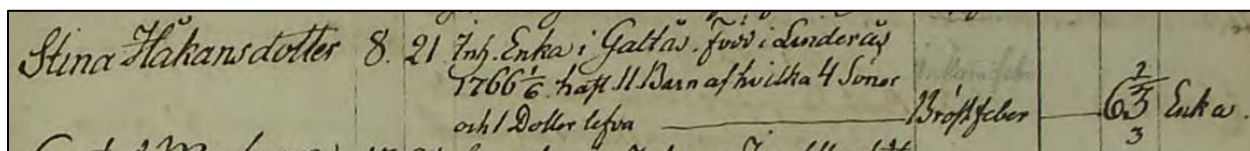 Stina Håkansdotter 8. 21 Inh. Enka i Galtås. född i Linderås
1766 1/6. haft 11 Barn af hvilka 4 Söner
och 1 Dotter lefva — Bröstfeber — 63 2/3 Enka.